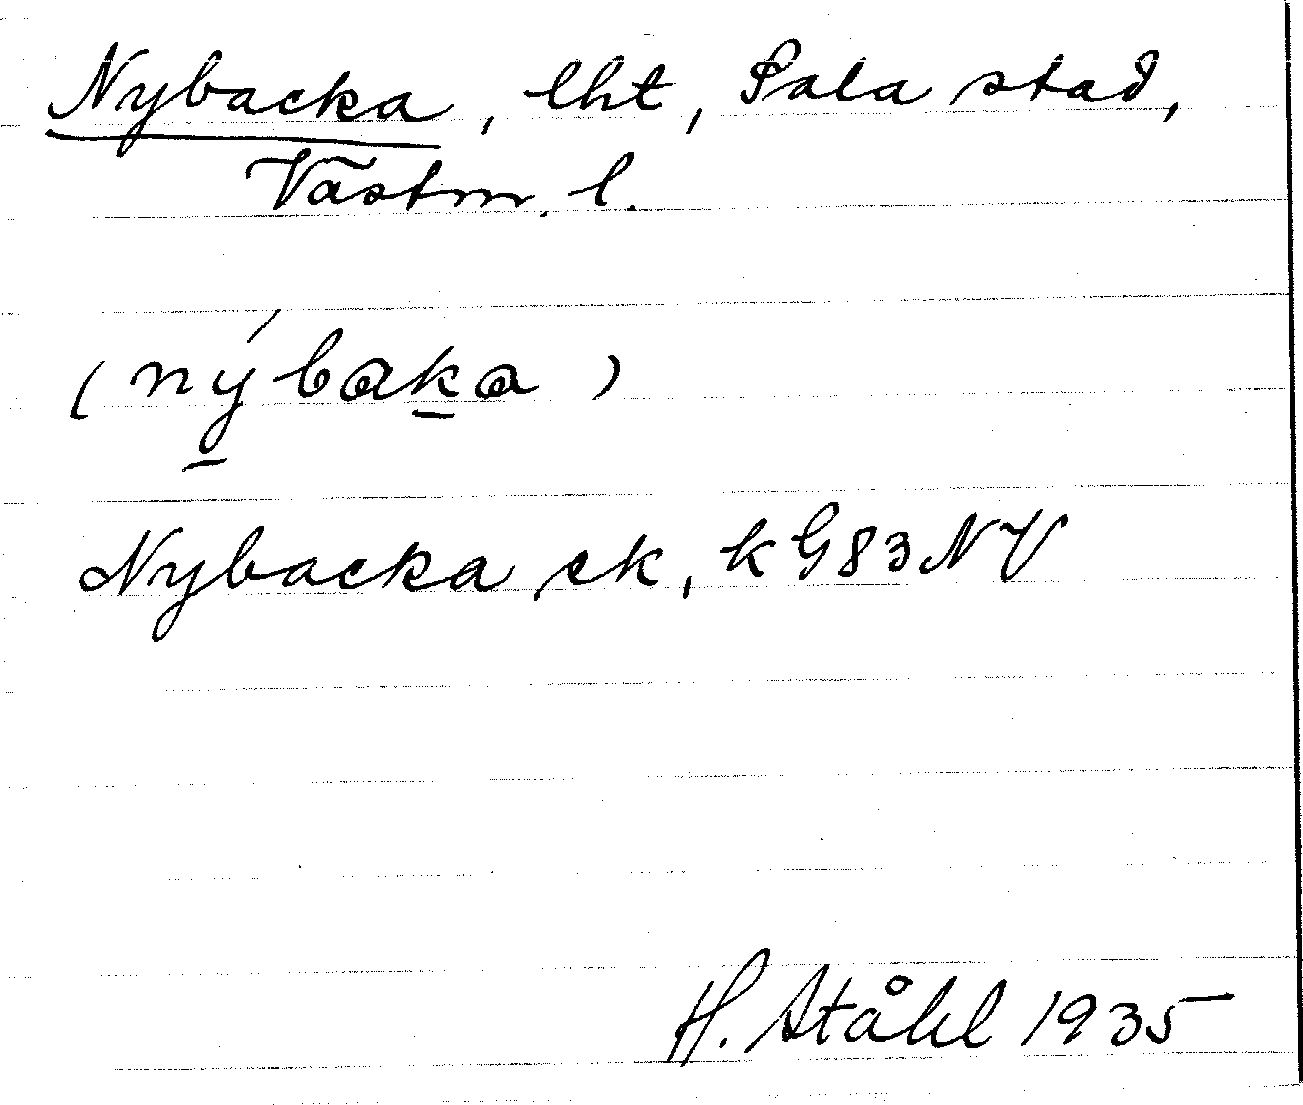 Nybacka, lht, Sala stad,
Västm. l.
(nýbaka)
Nybacka ek, k G83NV
H. Ståhl 1935